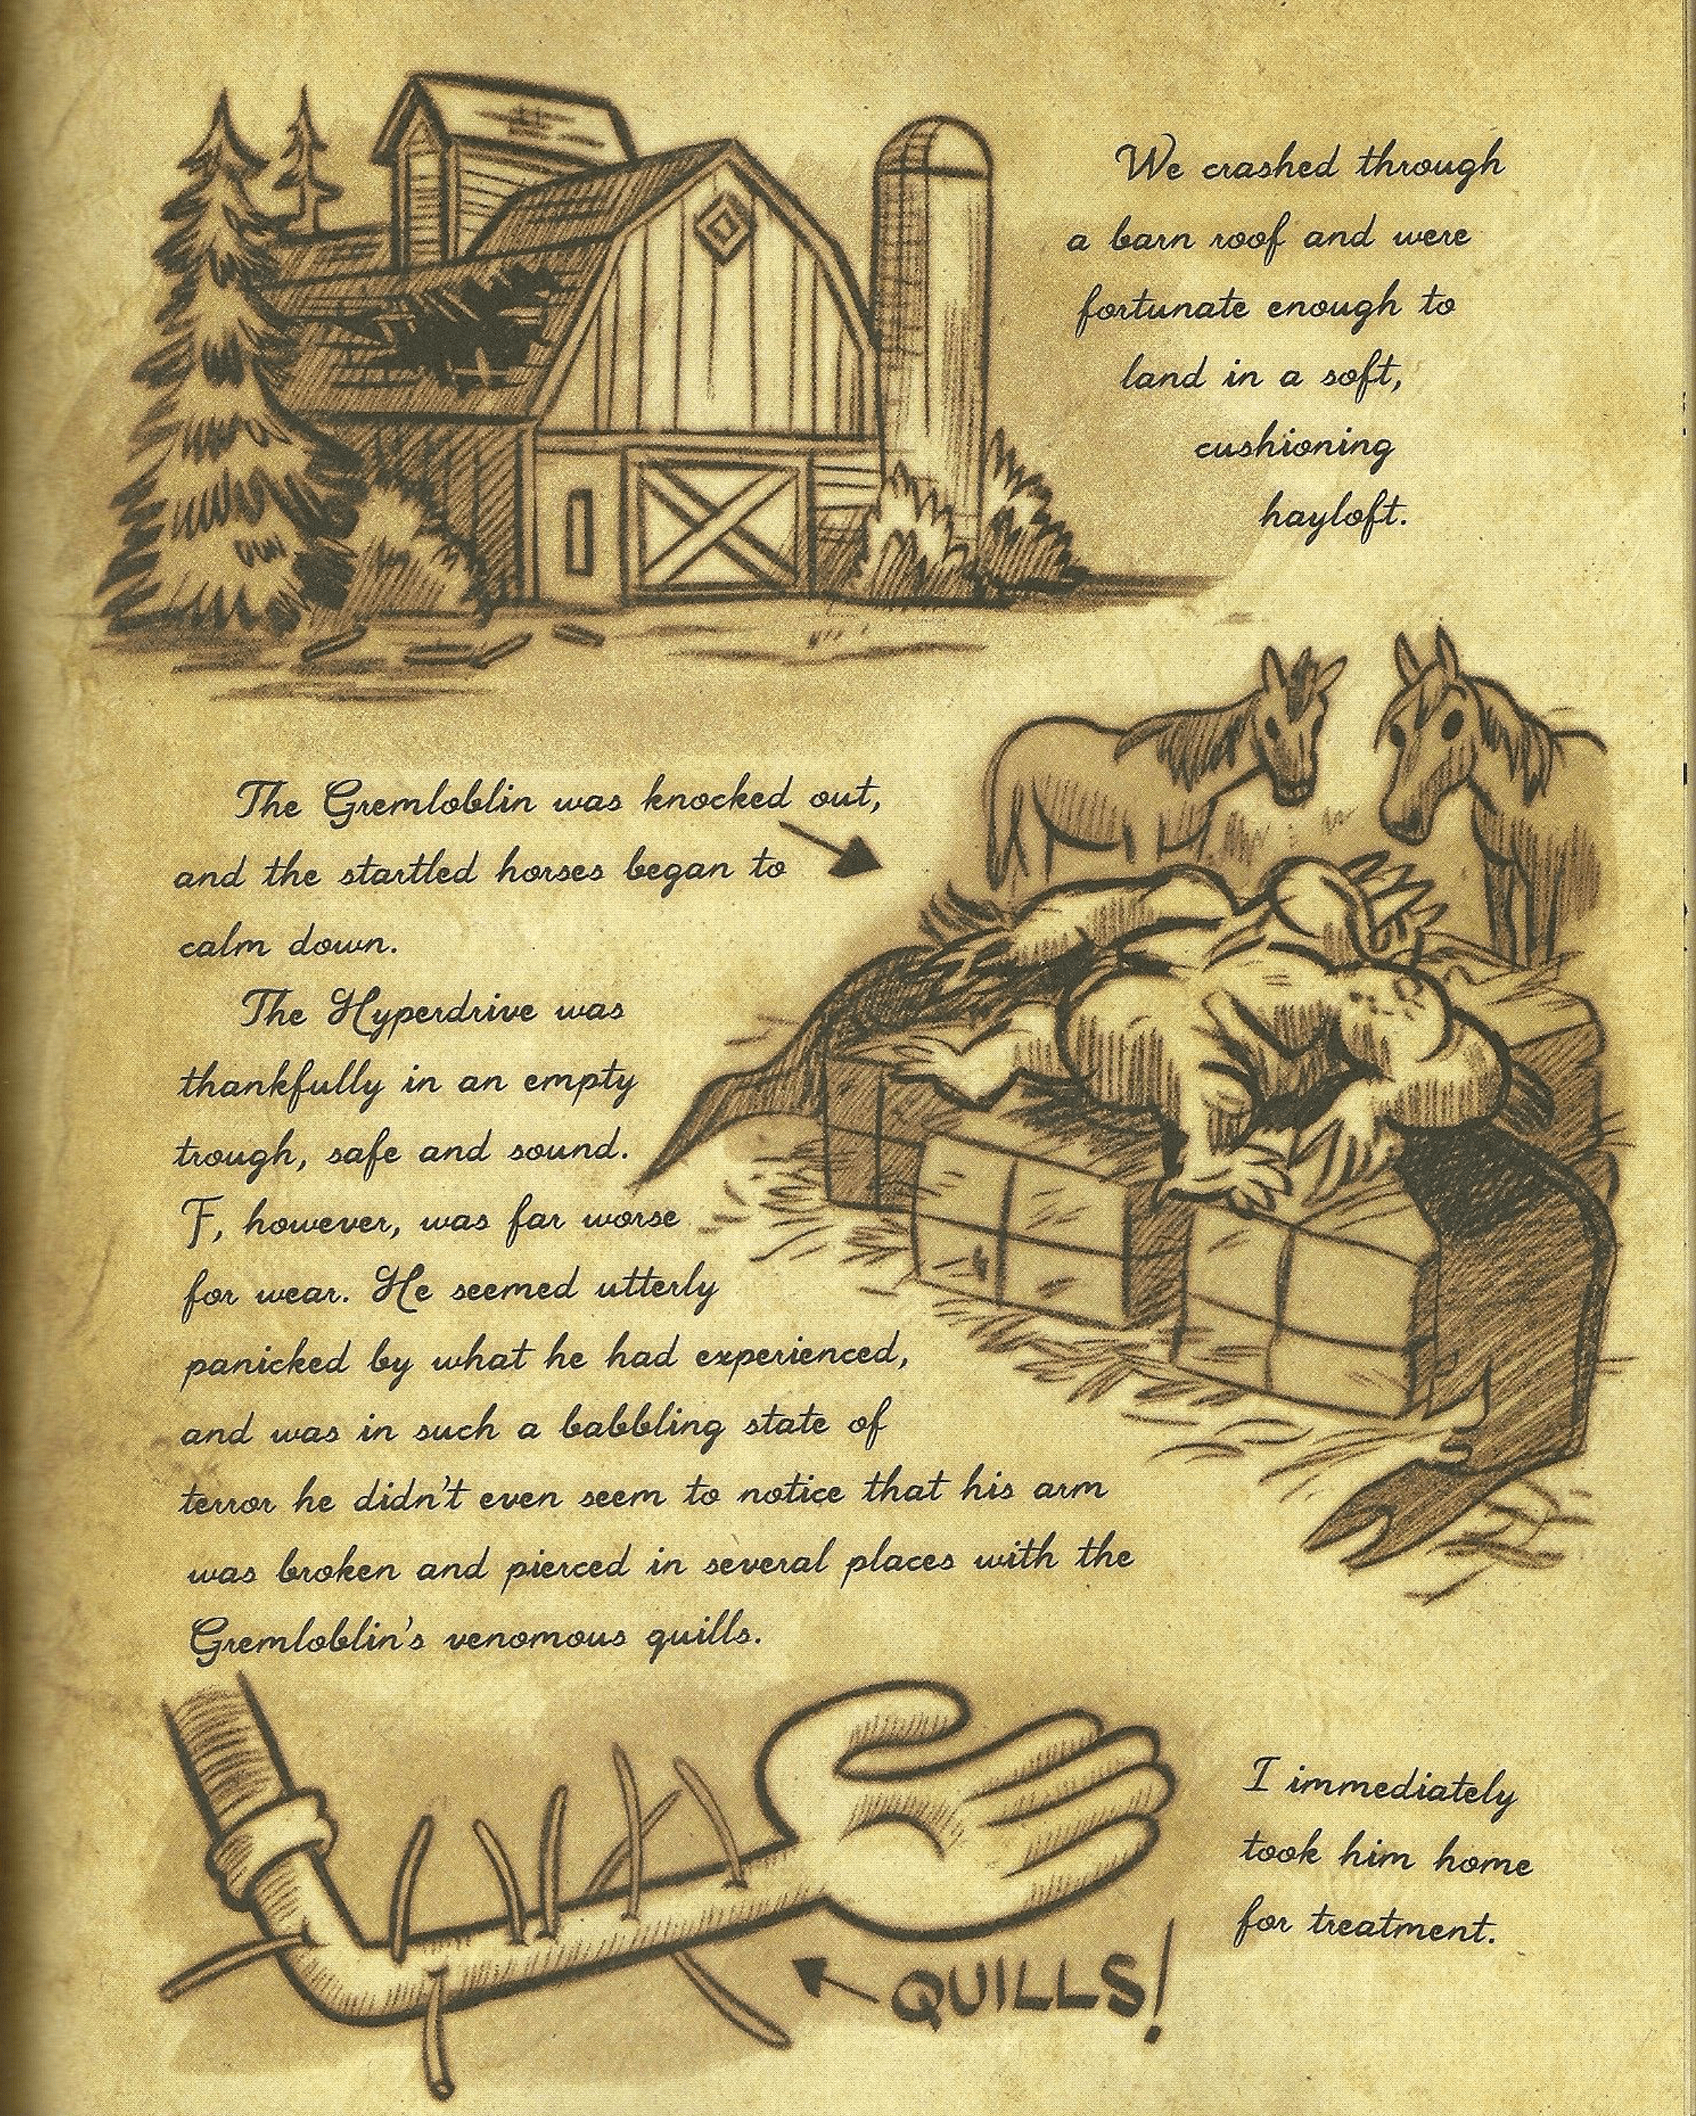 We crashed through
a barn roof and were
fortunate enough to
land in a soft,
cushioning
hayloft.
The Gremloblin was knocked out,
and the startled horses began to
calm down.
The Hyperdrive was
thankfully in an empty
trough, safe and sound.
F, however, was far worse
for wear. He seemed utterly
panicked by what he had experienced,
and was in such a babbling state of
terror he didn't even seem to notice that his arm
was broken and pierced in several places with the
Gremloblin's venomous quills.
I immediately
took him home
for treatment.
QUILLS!